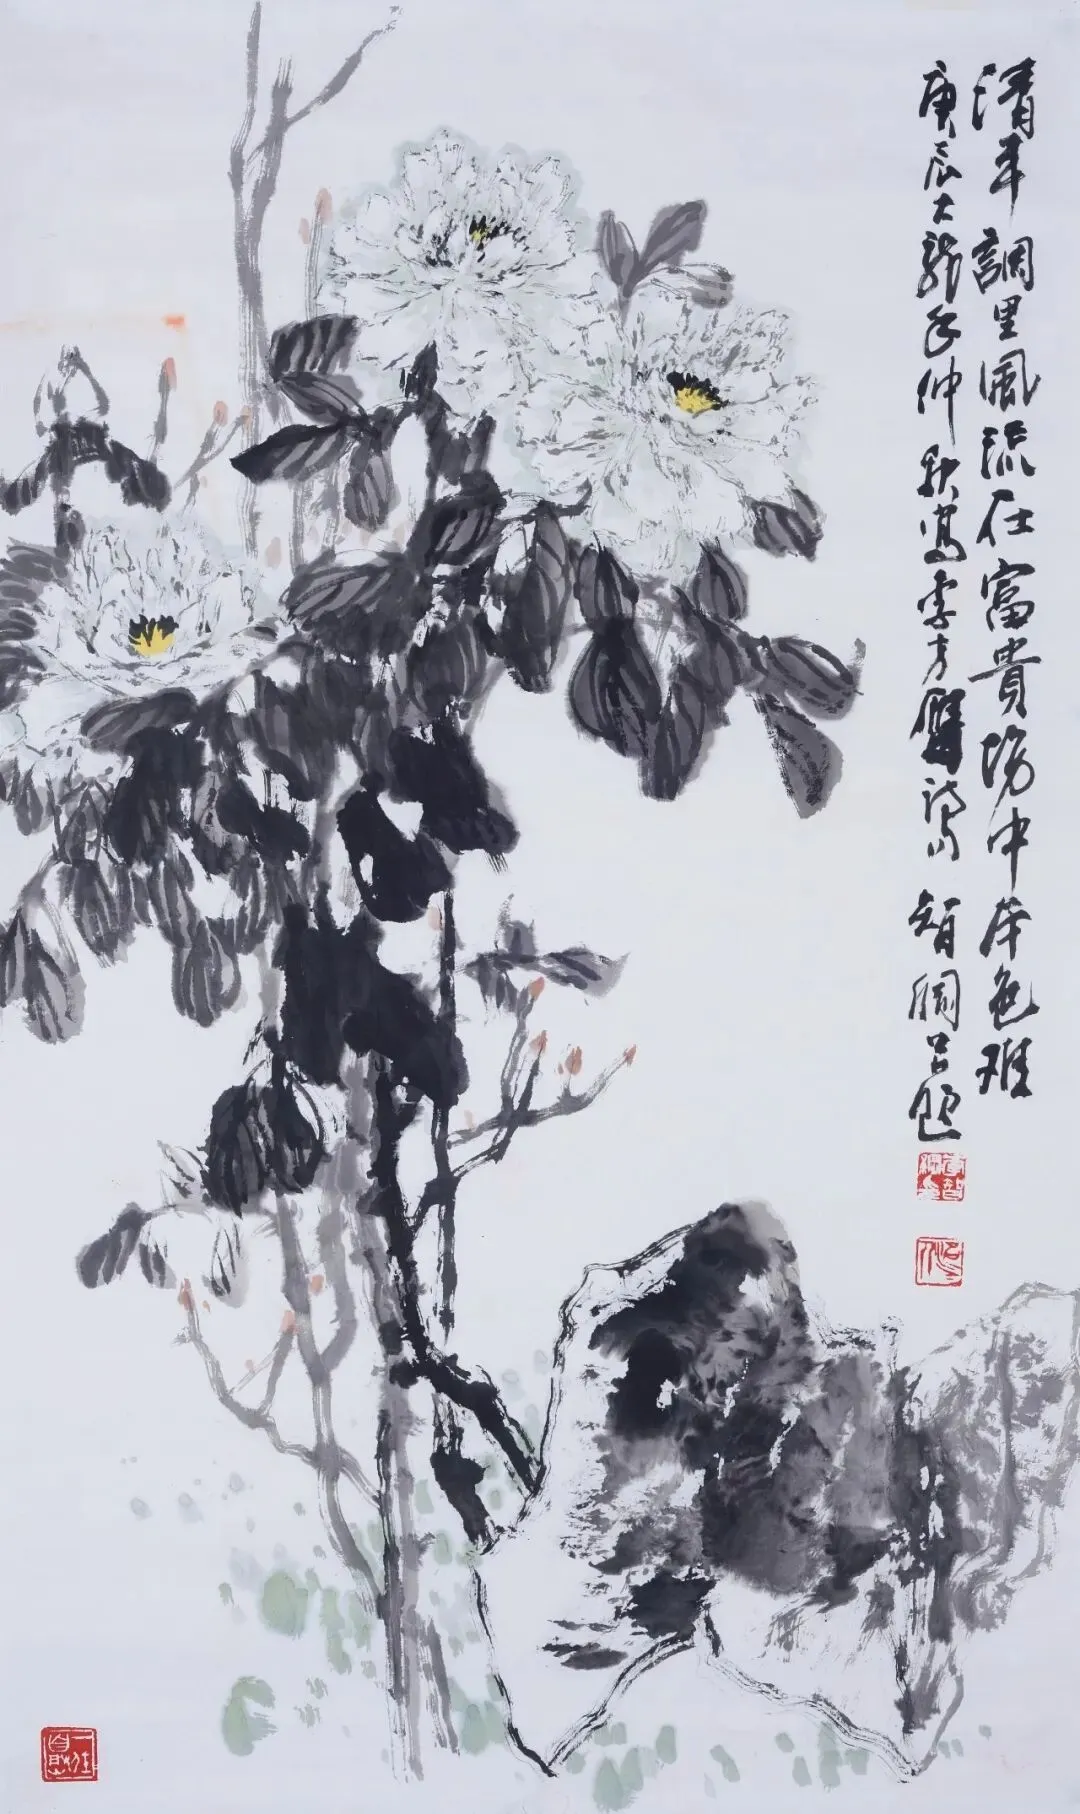 清平調里風流在富貴場中本色難
庚辰大龍年仲秋寫李方膺詩智綱題